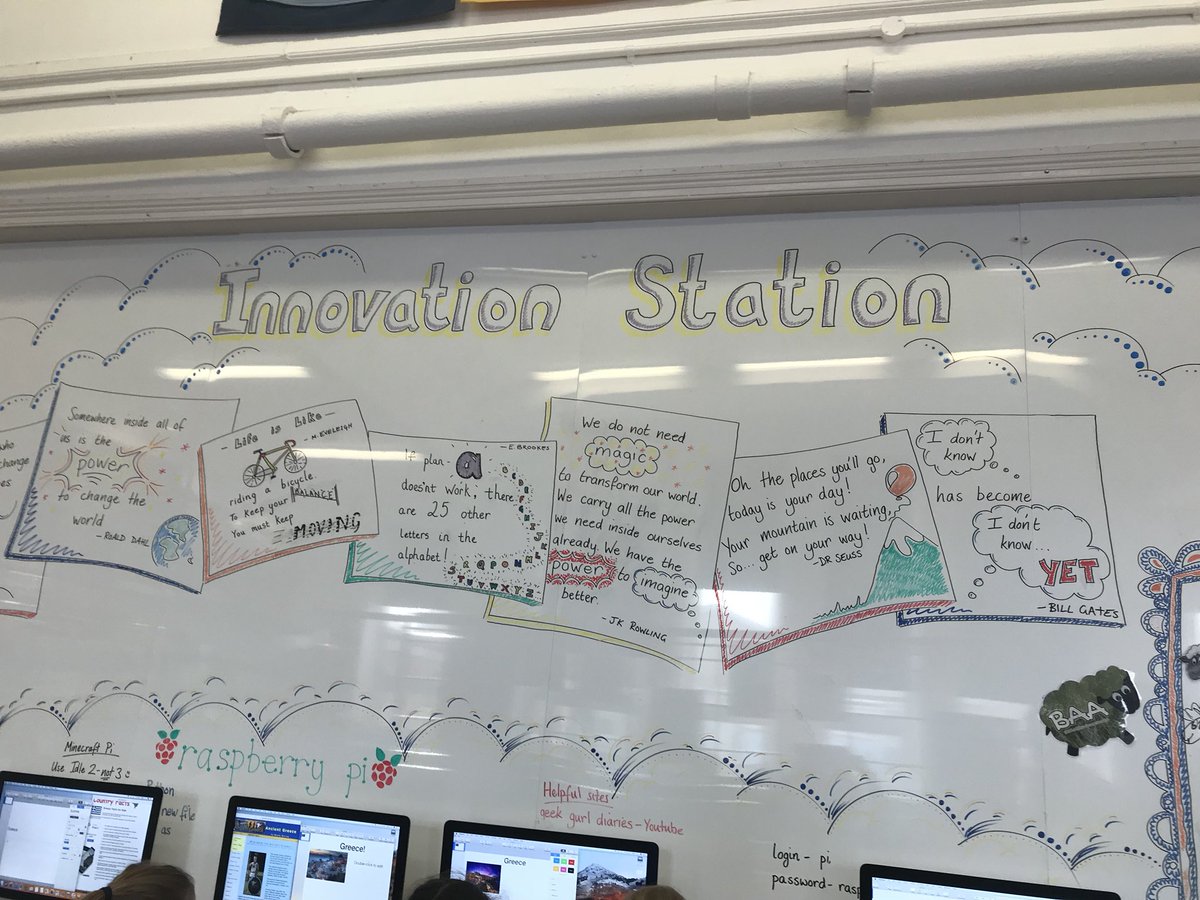 Innovation Station
who
change
Somewhere inside all of
us is the
power
to change the
world
- ROALD DAHL
- Life is Like -
- M. EVELEIGH
riding a bicycle.
To keep your BALANCE
You must keep
MOVING
- E. BROOKES
If plan - a
does'nt work, there
are 25 other
letters in the
alphabet!
We do not need
magic
to transform our world.
We carry all the power
we need inside ourselves
already. We have the
power to imagine
better.
- JK ROWLING
Oh the places you'll go,
today is your day!
Your mountain is waiting,
So... get on your way!
- DR SEUSS
I don't
know
has become
I don't
know...
YET
- BILL GATES
BAA
Minecraft Pi
Use Idle 2-not 3
new file
as
raspberry pi
Helpful sites
geek gurl diaries - Youtube
login - pi
password - rasp
Country Facts
Ancient Greece
Greece!
Greece